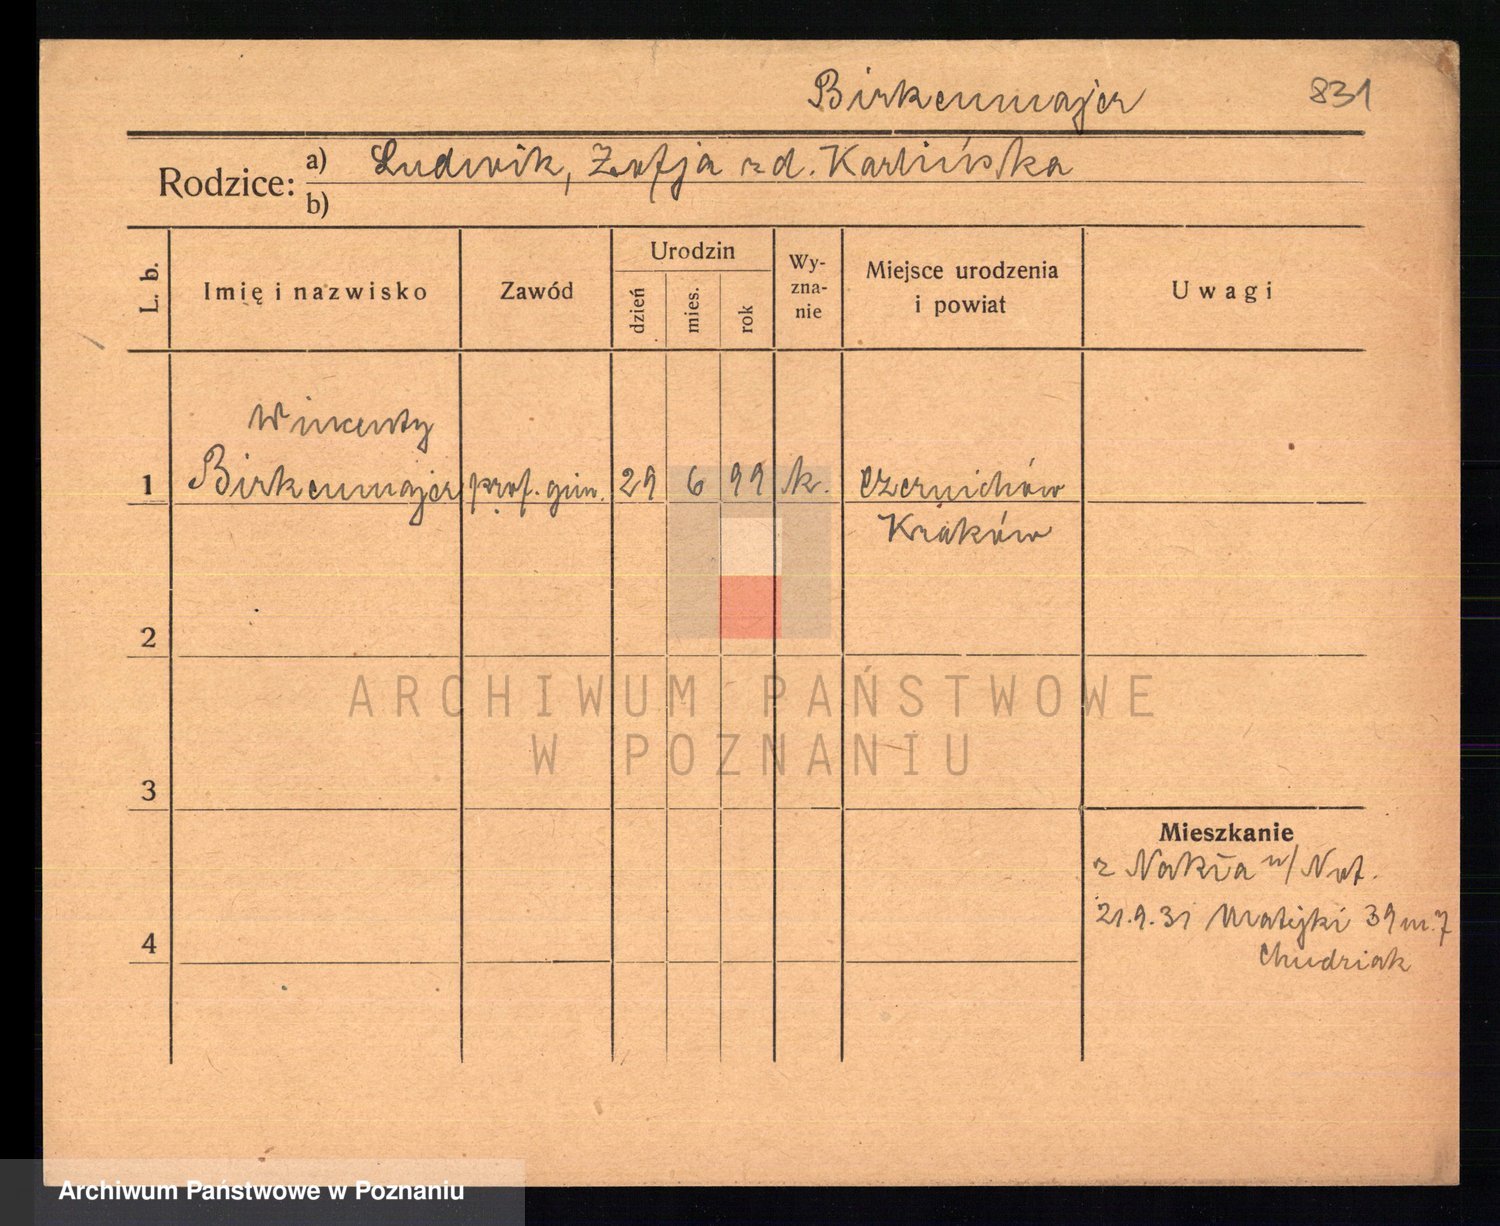 Birkenmajer
831
Rodzice: a) Ludwik, Zofja z d. Karlińska
b)
L. b.
Imię i nazwisko
Zawód
Urodzin
dzień
mies.
rok
Wy-
zna-
nie
Miejsce urodzenia
i powiat
Uwagi
Wincenty
1 Birkenmajer prof. gim. 29 6 99 k. Czernichów
Kraków
2
ARCHIWUM PAŃSTWOWE
W POZNANIU
3
Mieszkanie
z Nakła n/Not.
21.9.31 Matejki 39 m. 7
4
Chudziak
Archiwum Państwowe w Poznaniu